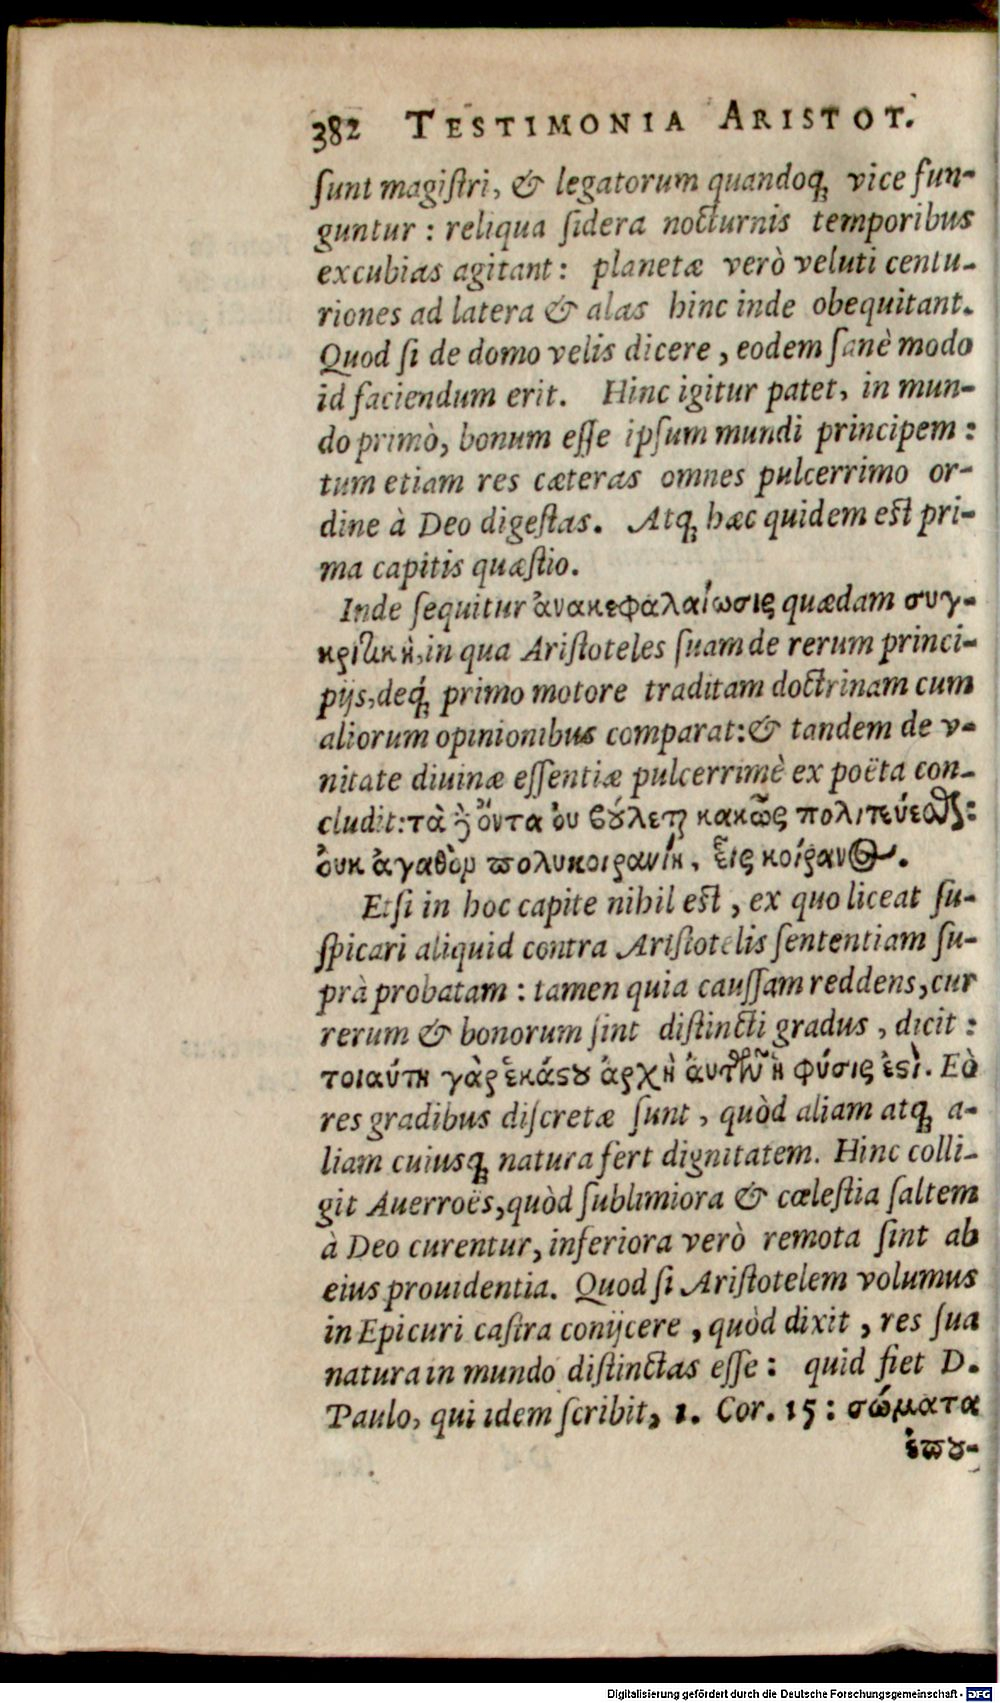 382 TESTIMONIA ARISTOT.
ſunt magiſtri, & legatorum quandoq; vice fun-
guntur : reliqua ſidera nocturnis temporibus
excubias agitant : planetæ verò veluti centu-
riones ad latera & alas hinc inde obequitant.
Quod ſi de domo velis dicere, eodem ſanè modo
id faciendum erit. Hinc igitur patet, in mun-
do primò, bonum eſſe ipſum mundi principem :
tum etiam res cæteras omnes pulcerrimo or-
dine à Deo digeſtas. Atq; hæc quidem eſt pri-
ma capitis quæſtio.
Inde ſequitur ἀνακεφαλαίωσις quædam συγ-
κριτικὴ, in qua Ariſtoteles ſuam de rerum princi-
pijs, deq́; primo motore traditam doctrinam cum
aliorum opinionibus comparat: & tandem de v-
nitate diuinæ eſſentiæ pulcerrimè ex poëta con-
cludit: τὰ ὃ ὄντα ὀυ βούλεται κακῶς πολιτεύεσθαι:
ὀυκ ἀγαθὸν πολυκοιρανίη, εἷς κοίρανος.
Etſi in hoc capite nihil eſt, ex quo liceat ſu-
ſpicari aliquid contra Ariſtotelis ſententiam ſu-
prà probatam : tamen quia cauſſam reddens, cur
rerum & bonorum ſint diſtincti gradus, dicit :
τοιαύτη γὰρ ἑκάστου ἀρχὴ ἀυτῶν ἡ φύσις ἐστὶ. Eò
res gradibus diſcretæ ſunt, quòd aliam atq; a-
liam cuiusq; natura fert dignitatem. Hinc colli-
git Auerroës, quòd ſublimiora & cœleſtia ſaltem
à Deo curentur, inferiora verò remota ſint ab
eius prouidentia. Quod ſi Ariſtotelem volumus
in Epicuri caſtra conijcere, quòd dixit, res ſua
natura in mundo diſtinctas eſſe : quid fiet D.
Paulo, qui idem ſcribit, 1. Cor. 15 : σώματα
ἐπου-
Digitalisierung gefördert durch die Deutsche Forschungsgemeinschaft - DFG